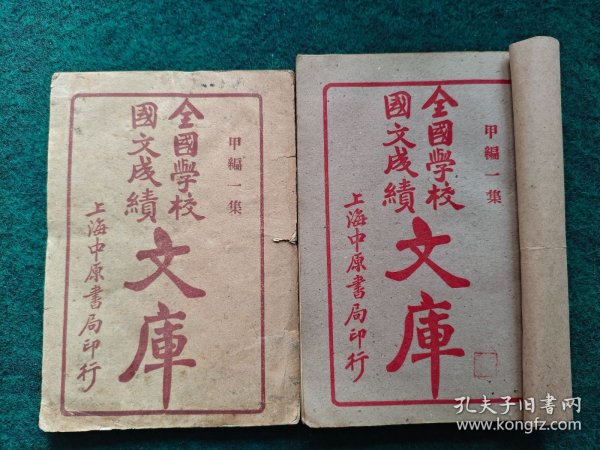 甲編一集
全國學校
國文成績
文庫
上海中原書局印行
甲編一集
全國學校
國文成績
文庫
上海中原書局印行
孔夫子旧书网
www.kongfz.com